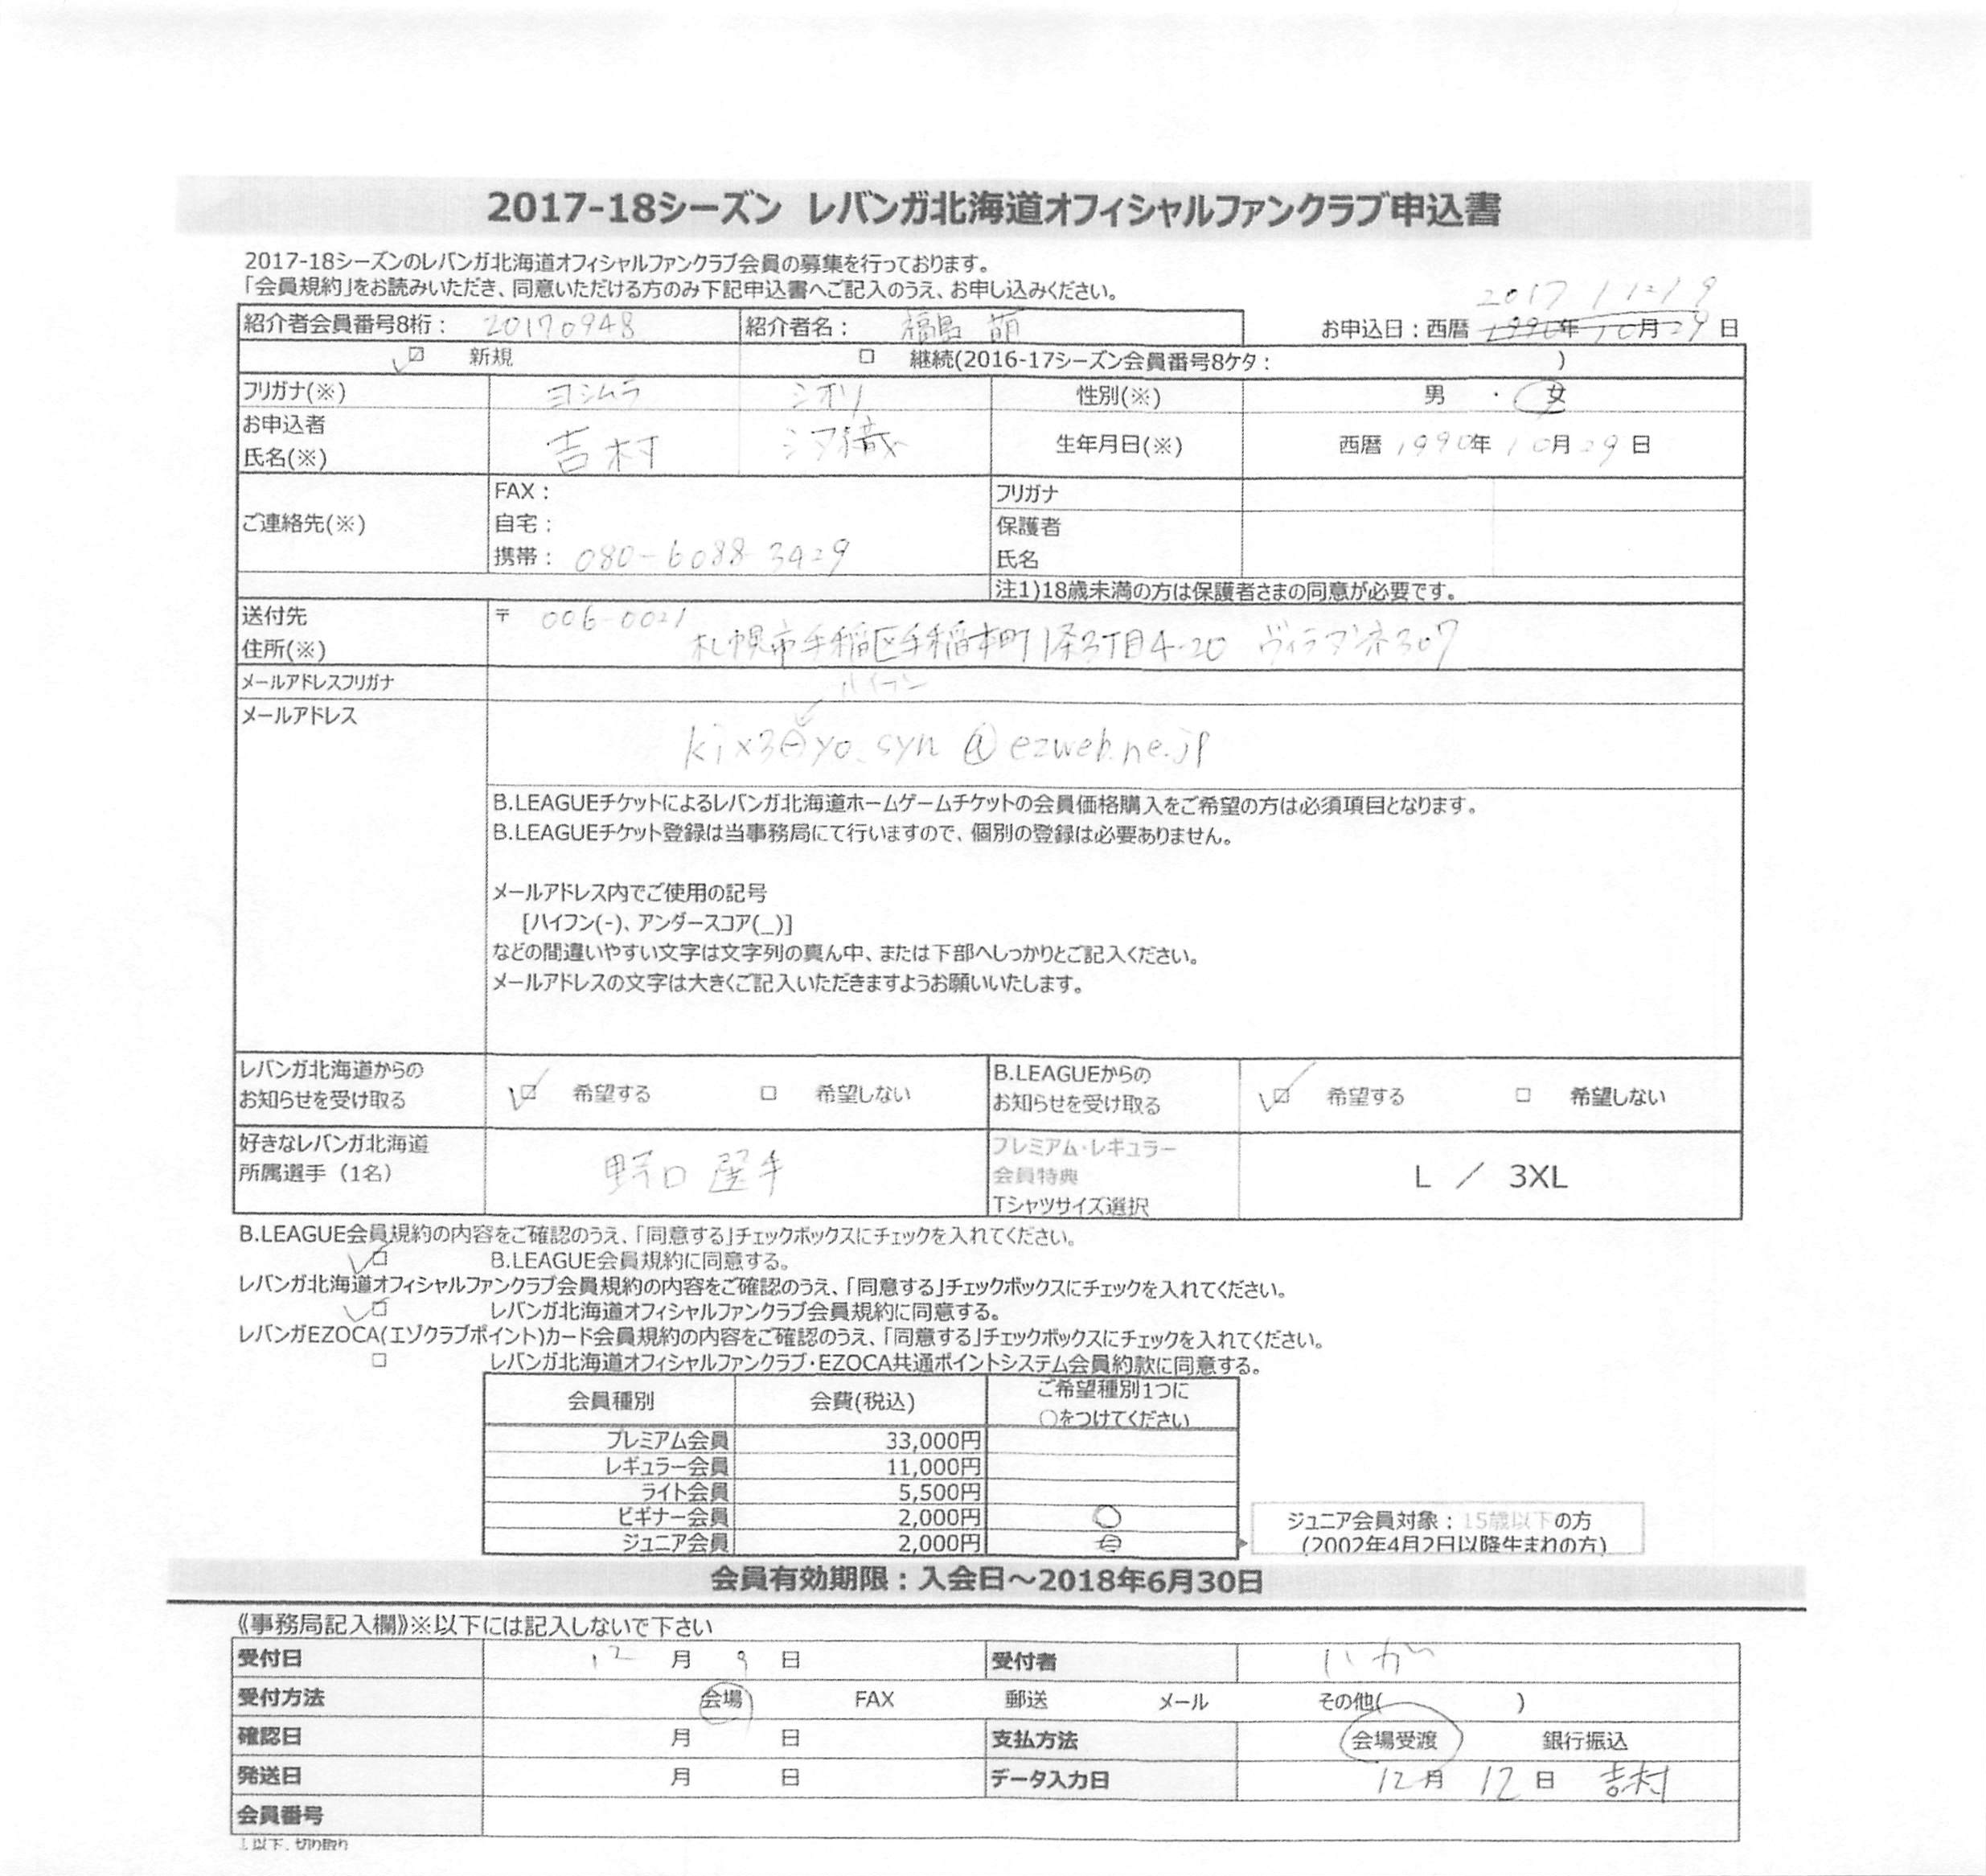 2017-18シーズン レバンガ北海道オフィシャルファンクラブ申込書
2017-18シーズンのレバンガ北海道オフィシャルファンクラブ会員の募集を行っております。
「会員規約」をお読みいただき、同意いただける方のみ下記申込書へご記入のうえ、お申し込みください。
2017 12 9
紹介者会員番号8桁: 20170948 紹介者名: 福島 萌 お申込日:西暦 1990年 10月 29日
☑ 新規 □ 継続(2016-17シーズン会員番号8ケタ: )
フリガナ(※) ヨシムラ シオリ 性別(※) 男 ・ 女
お申込者
氏名(※) 吉村 汐織 生年月日(※) 西暦 1990年 10月 29日
ご連絡先(※) FAX: フリガナ
自宅: 保護者
携帯: 080-6088-3429 氏名
注1)18歳未満の方は保護者さまの同意が必要です。
送付先 〒 006-0021
住所(※) 札幌市手稲区手稲本町1条3丁目4-20 ヴィラアンネ307
メールアドレスフリガナ ハイフン
メールアドレス kix3-yo.syn@ezweb.ne.jp
B.LEAGUEチケットによるレバンガ北海道ホームゲームチケットの会員価格購入をご希望の方は必須項目となります。
B.LEAGUEチケット登録は当事務局にて行いますので、個別の登録は必要ありません。
メールアドレス内でご使用の記号
[ハイフン(-)、アンダースコア(_)]
などの間違いやすい文字は文字列の真ん中、または下部へしっかりとご記入ください。
メールアドレスの文字は大きくご記入いただきますようお願いいたします。
レバンガ北海道からの
お知らせを受け取る ☑ 希望する □ 希望しない B.LEAGUEからの
お知らせを受け取る ☑ 希望する □ 希望しない
好きなレバンガ北海道
所属選手(1名) 野口 選手 プレミアム・レギュラー
会員特典
Tシャツサイズ選択 L / 3XL
B.LEAGUE会員規約の内容をご確認のうえ、「同意する」チェックボックスにチェックを入れてください。
☑ B.LEAGUE会員規約に同意する。
レバンガ北海道オフィシャルファンクラブ会員規約の内容をご確認のうえ、「同意する」チェックボックスにチェックを入れてください。
☑ レバンガ北海道オフィシャルファンクラブ会員規約に同意する。
レバンガEZOCA(エゾクラブポイント)カード会員規約の内容をご確認のうえ、「同意する」チェックボックスにチェックを入れてください。
□ レバンガ北海道オフィシャルファンクラブ・EZOCA共通ポイントシステム会員約款に同意する。
会員種別 会費(税込) ご希望種別1つに
○をつけてください
プレミアム会員 33,000円
レギュラー会員 11,000円
ライト会員 5,500円
ビギナー会員 2,000円 ○
ジュニア会員 2,000円
ジュニア会員対象:15歳以下の方
(2002年4月2日以降生まれの方)
会員有効期限:入会日~2018年6月30日
《事務局記入欄》※以下には記入しないで下さい
受付日 12月 9日 受付者
受付方法 会場 FAX 郵送 メール その他( )
確認日 月 日 支払方法 会場受渡 銀行振込
発送日 月 日 データ入力日 12月 12日 吉村
会員番号
以下、切り取り